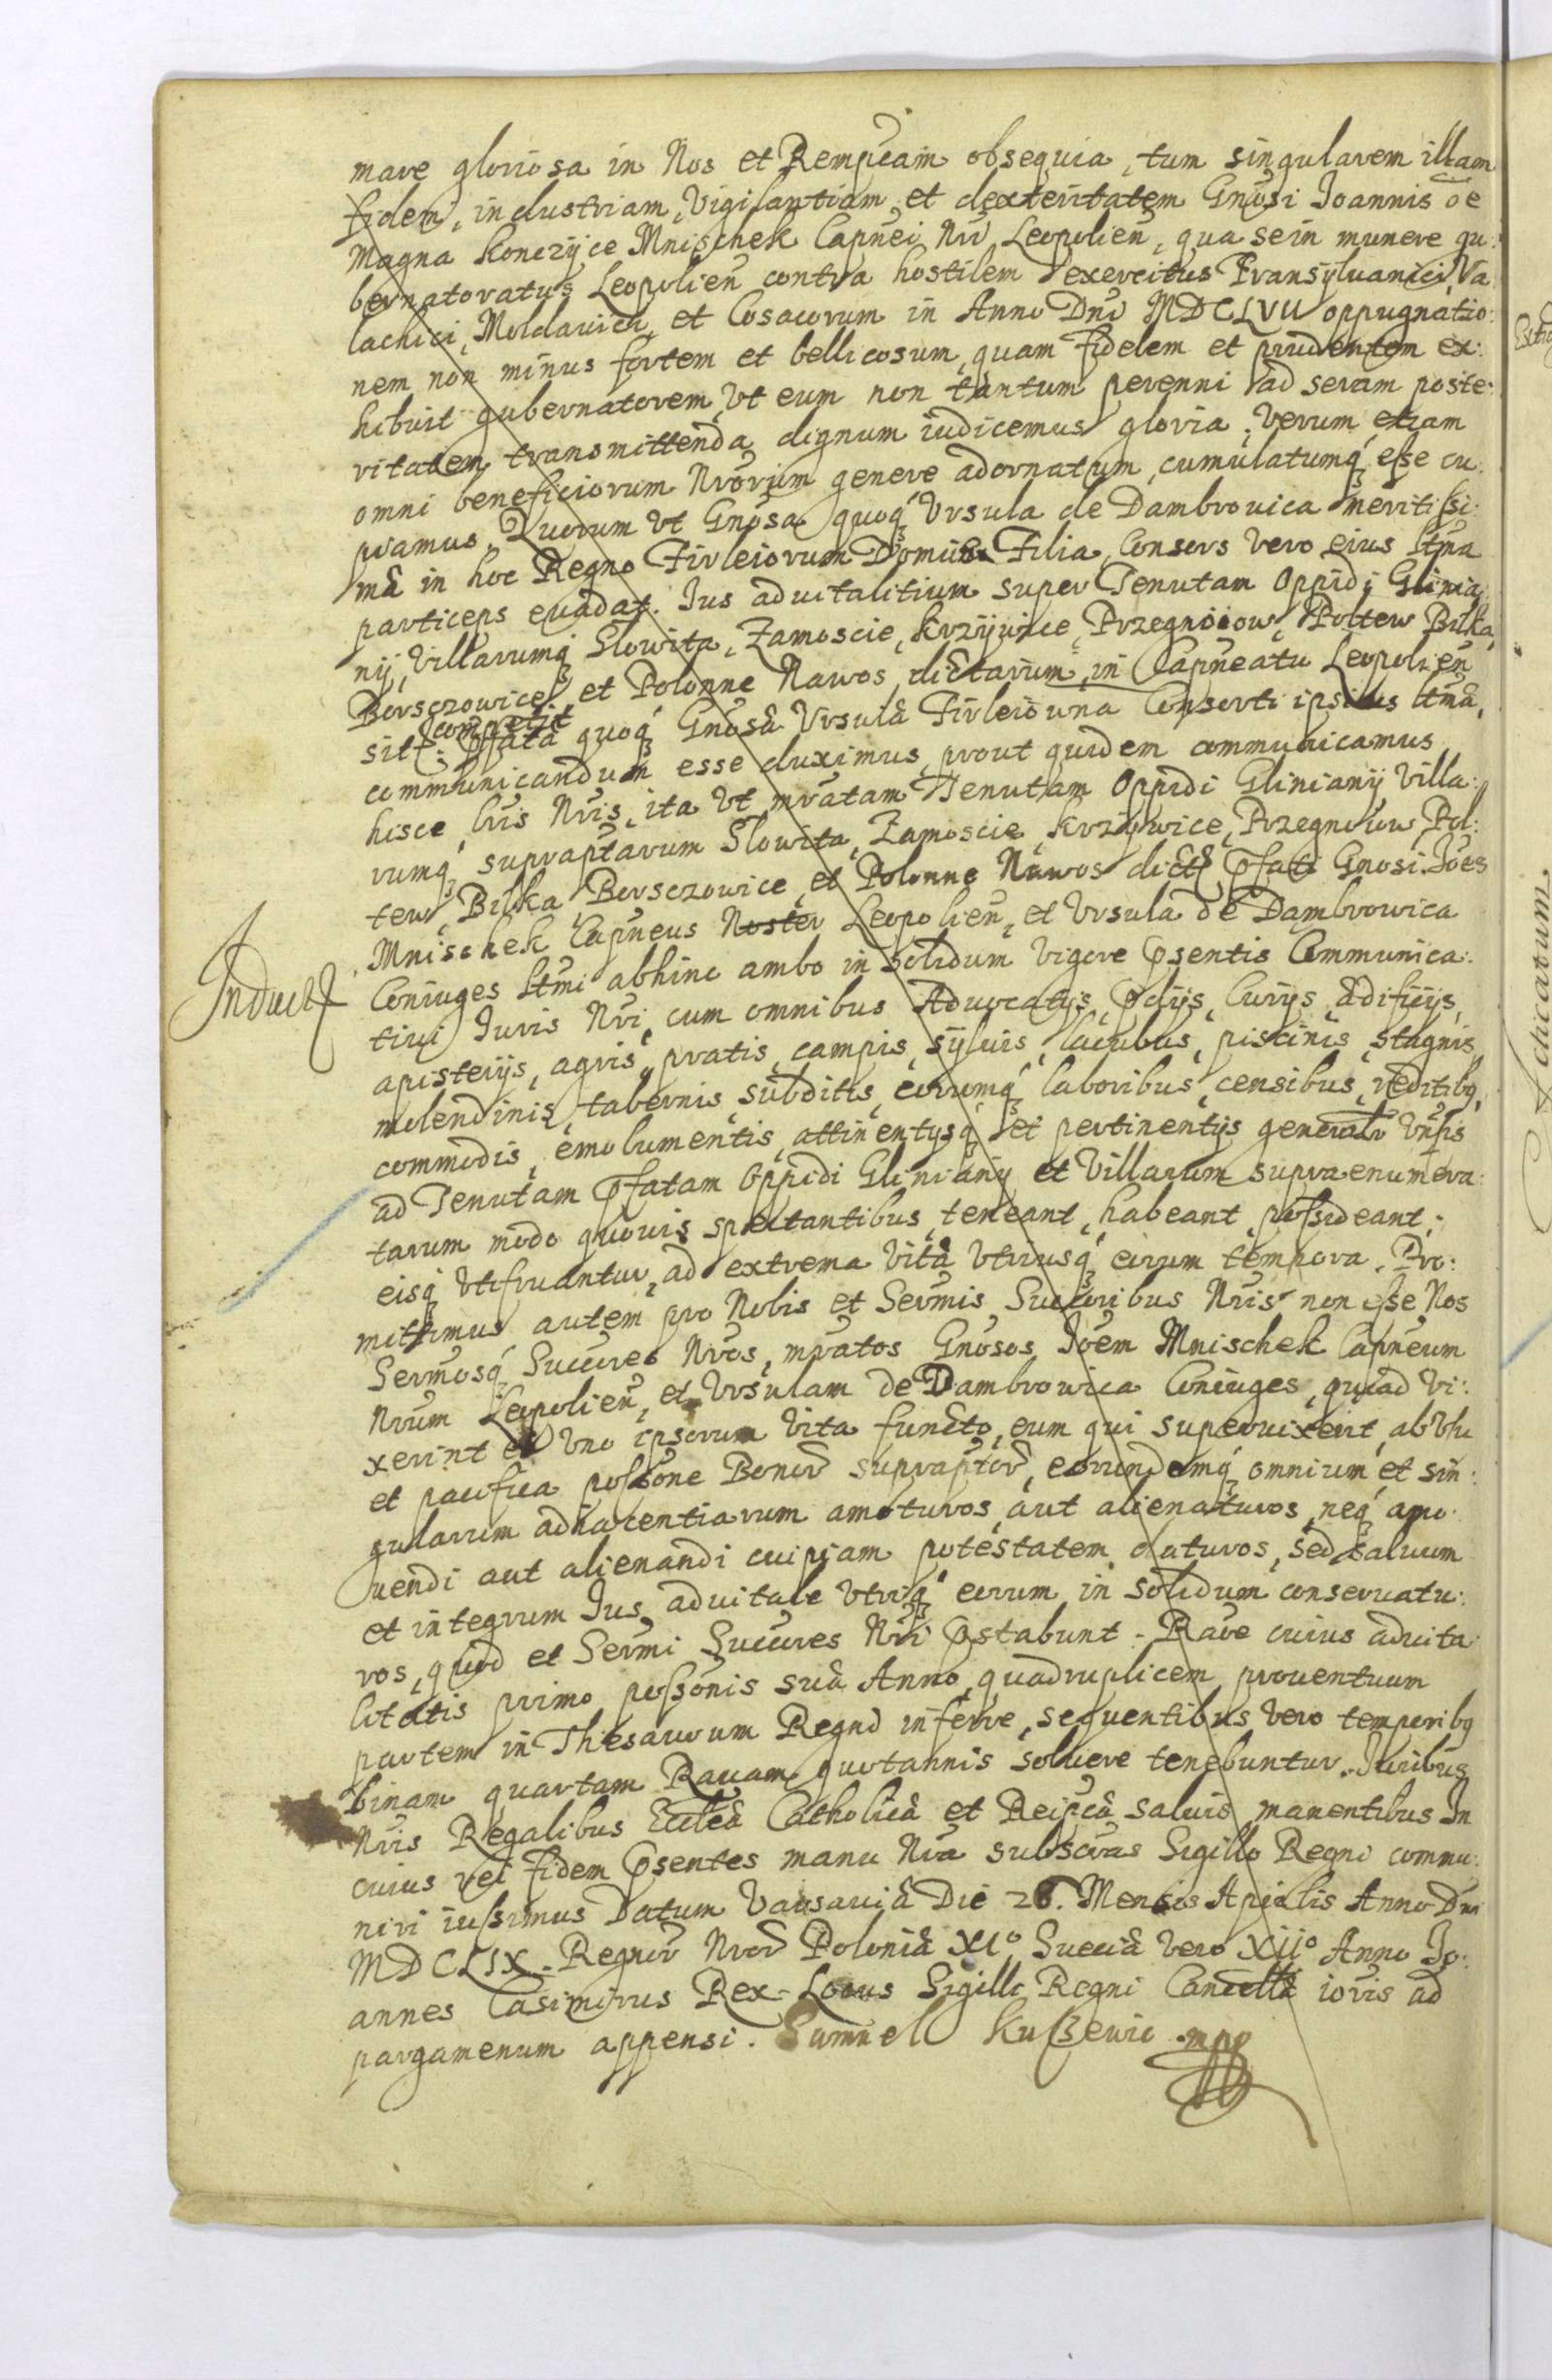 mare gloriosa in Nos et Rempcam obsequia, tum singularem illam
fidem, industriam, Vigilantiam, et dexteritatem Gnosi Joannis de
Magna Konczyce Mnischek Capnei Nri Leopolien, qua se in munere gu:
bernatoratus Leopolien contra hostilem exercitus Transyluanici, Va
lachici, Moldauici, et Cosacorum in Anno Dni MDCLVII oppugnatio:
nem non minus fortem et bellicosum, quam fidelem et prudentem ex:
hibuit gubernatorem, Vt eum non tantum perenni ad seram poste:
ritatem transmittenda dignum iudicemus gloria, Verum etiam
omni beneficiorum Nrorum genere adornatum, cumulatumq esse cu:
piamus. Quorum Vt Gnosa quoq Vrsula de Dambrouica meritissi:
mæ in hoc Regno Firleiorum Domus Filia, Consors Vero eius ltma
particeps euadat. Jus aduitalitium super Tenutam Oppidi Glinia
nij, Villarumq Slowita, Zamoscie, Krzywice, Przegnoiow, Poltew Bilka,
Borsczowice, et Polonne Nawos, dictarum in Capneatu Leopolien
sit: competit pfatæ quoq Gnosæ Vrsulæ Firleiouna Consorti ipsius ltmæ,
communicandum esse duximus, prout quidem communicamus
hisce lris Nris, ita Vt mratam Tenutam Oppidi Glinianij Villa:
rumq supraptarum Slowita, Zamoscie, Krzywice, Przegnoiow, Pol:
tew, Bilka, Borsczowice, et Polonne Nawos dict pfati Gnosi Joes
Mnischek Capneus Noster Leopolien, et Vrsula de Dambrowica
Induct
Coniuges ltmi abhinc ambo in solidum Vigore psentis Communica:
tiui Juris Nri, cum omnibus Aduocatijs, pdijs, Curijs, ædificijs,
apisterijs, agris, pratis, campis, syluis, lacubus, piscinis, stagnis,
molendinis, tabernis, subditis, eorumq laboribus, censibus, reditibq,
commodis, emolumentis, attinentijsq et pertinentijs generalr Vnsis
ad Tenutam pfatam Oppidi Glinianij et Villarum supra enumera:
tarum modo quouis spectantibus, teneant, habeant, possideant,
eisq Vtifruantur, ad extrema Vitæ Vtriusq eorum tempora. Pro:
mittimus autem pro Nobis et Sermis Succoribus Nris non esse Nos
Sermosq Succores Nros, mratos Gnosos Joem Mnischek Capneum
Nrum Leopolien, et Vrsulam de Dambrowica Coniuges, quoad Vi:
xerint et Vno ipsorum Vita functo, eum qui superuixerit, ab Vsu
et pacifica possone Bonor supraptor, eorundemq omnium et sin:
gularum adiacentiarum amoturos, aut alienaturos, neq amo:
uendi aut alienandi cuipiam potestatem daturos, sed saluum
et integrum Jus aduitale Vtriq eorum in solidum conseruatu:
ros, quod et Sermi Succores Nri pstabunt - Raoe cuius aduita
litatis primo possonis suæ Anno, quadruplicem prouentuum
partem in Thesaurum Regni inferre, sequentibus Vero temporibq
binam quartam Rauam quotannis soluere tenebuntur. Juribus
Nris Regalibus Ecclæ Catholicæ et Reipcæ saluis manentibus In
cuius rei fidem psentes manu Nra subscras Sigillo Regni commu:
niri iussimus Datum Varsauiæ Die 28. Mensis Aprilis Anno Dni
MDCLIX. Regnor Nror Poloniæ XIo. Sueciæ Vero XIIo Anno Jo:
annes Casimirus Rex - Locus Sigilli Regni Cancella ioris ad
pargamenum appensi. Samuel Kuszewic mpp